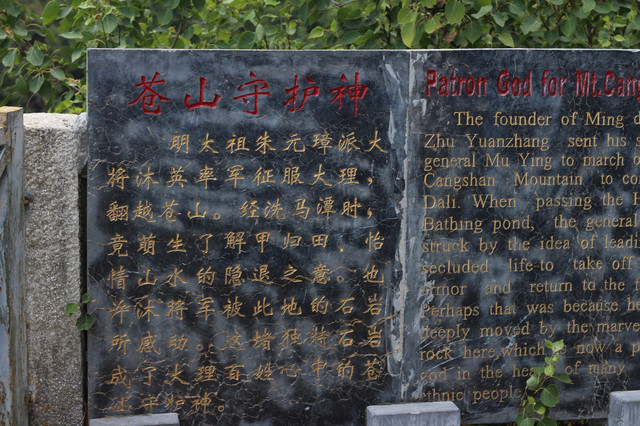 苍山守护神
明太祖朱元璋派大
将沐英率军征服大理，
翻越苍山。经洗马潭时，
竟萌生了解甲归田、怡
情山水的隐退之意。也
许沐将军被此地的石岩
所感动。这堵独特石岩
成了大理百姓心中的苍
山守护神。
Patron God for Mt.Cang
The founder of Ming d
Zhu Yuanzhang sent his s
general Mu Ying to march o
Cangshan Mountain to con
Dali. When passing the H
Bathing pond, the general
struck by the idea of leadi
secluded life-to take off
armor and return to the f
Perhaps that was because he
deeply moved by the marve
rock here,which is now a p
god in the hea of many
ethnic people.